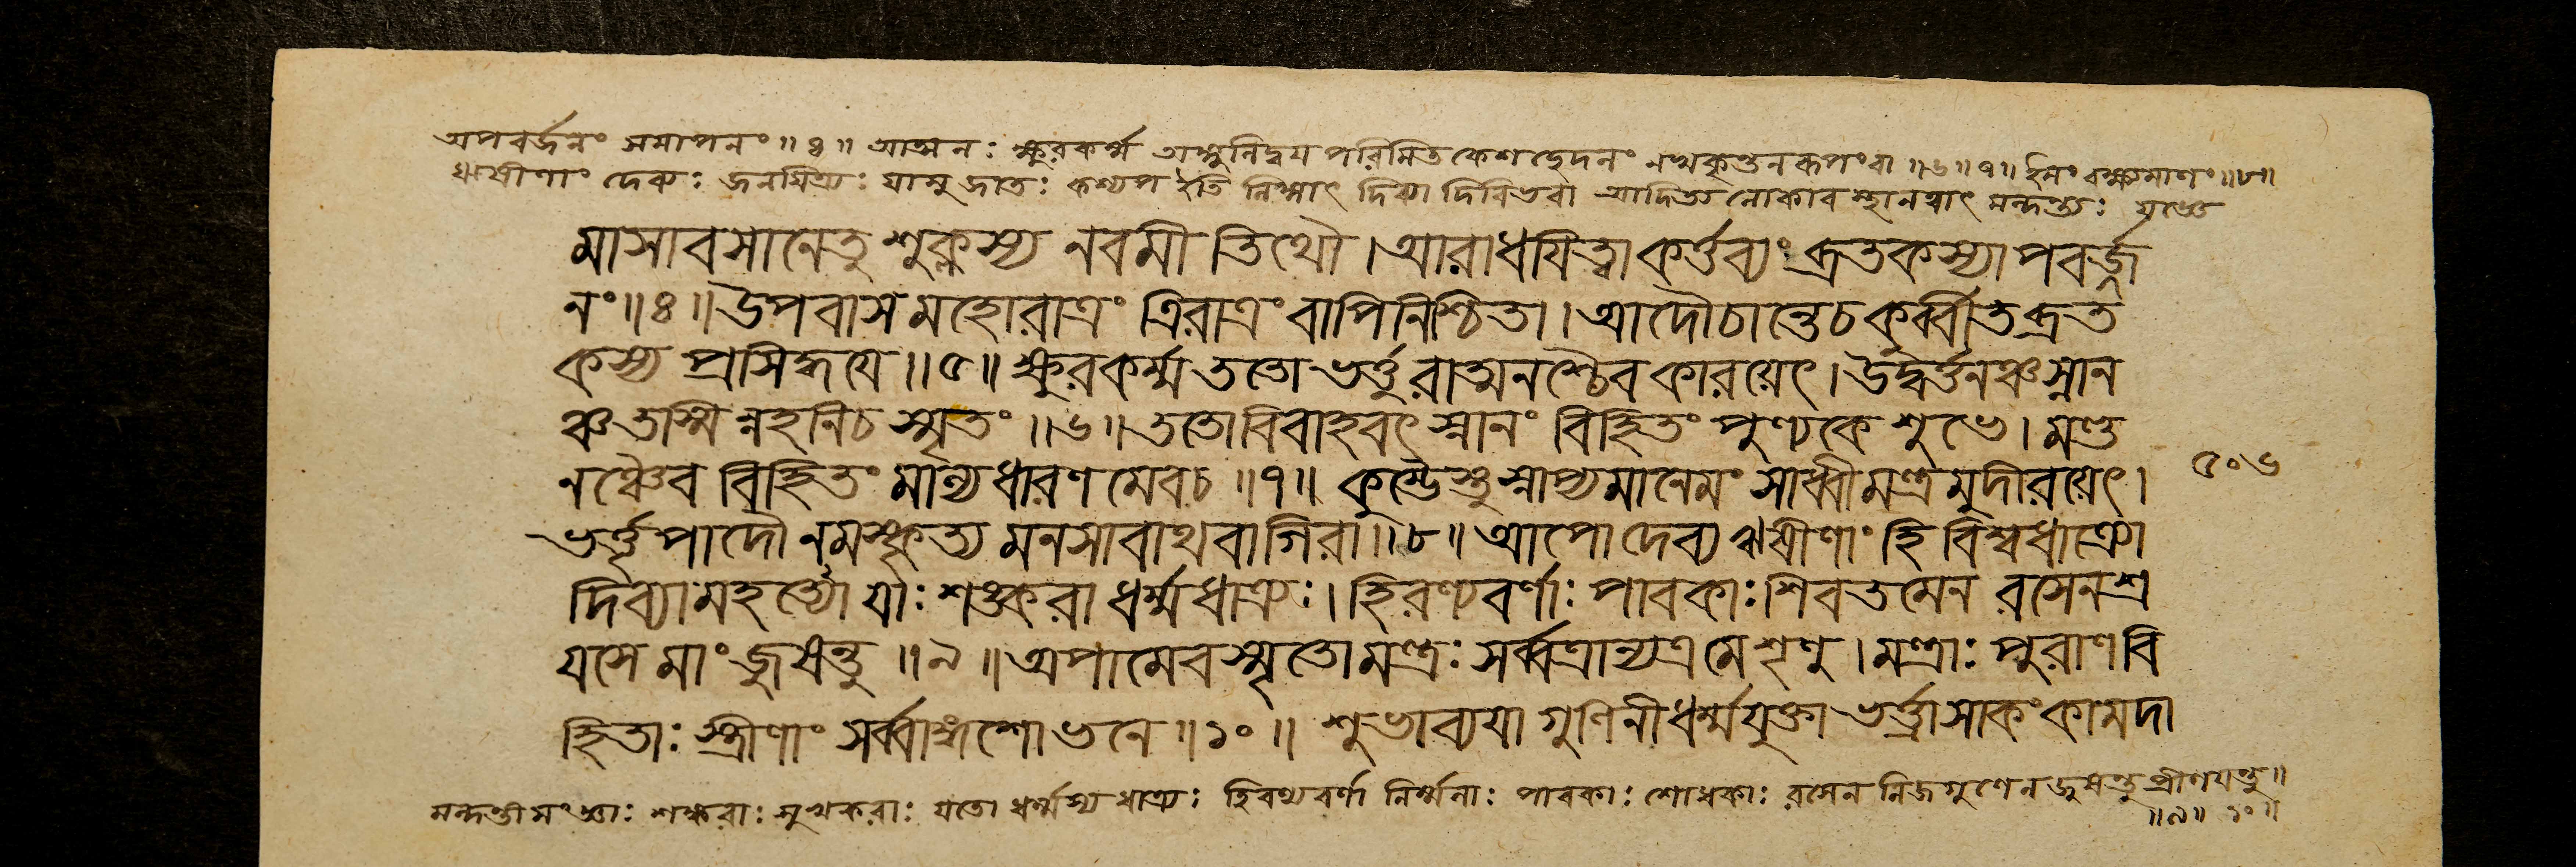 অপবর্জনং সমাপনং ॥ ৪ ॥ আত্মনঃ ক্ষুরকর্ম্ম অঙ্গুলিদ্বয পরিমিতকেশছেদনং নখকৃন্তনরূপংবা ॥৬॥ ৭॥ ইমং বক্ষ্যমাণং ॥৮॥
ঋষীণাং দেব্যঃ জনয়িত্র্যঃ যাসু জাতঃ কশ্যপ ইতি দিব্যা দিবিভবা আদিত্য লোকাবস্থানত্বাৎ
মাসাবসানেতু শুক্লস্য নবমী তিথৌ । আরাধযিত্বা কর্ত্তব্যং ব্রতকস্যাপবর্জ
নং ॥ ৪ ॥ উপবাসমহোরাত্রং ত্রিরাত্রং বাপিনিশ্চিতা । আদৌচান্তেচকুর্ব্বীতব্রত
কস্য প্রসিদ্ধযে ॥ ৫ ॥ ক্ষুরকর্ম্ম ততো ভর্ত্তুরাত্মনশ্চৈব কারয়েৎ । উদ্বর্ত্তনঞ্চস্নান
ঞ্চতাস্মিন্নহনিচ স্মৃতং ॥ ৬ ॥ ততোবিবাহবৎ স্নানং বিহিতং পুণ্যকে শুভে । মণ্ড
নঞ্চৈব বিহিতং মাল্যধারণমেবচ ॥ ৭ ॥ কুম্ভৈস্তুস্নাপ্যমানেমং সাধ্বীমন্ত্রমুদীরয়েৎ ।
৫০৬
ভর্ত্তৃপাদৌ নমস্কৃত্য মনসাবাথবাগিরা ॥ ৮ ॥ আপোদেব্য ঋষীণাং হি বিশ্বধাত্র্যো
দিব্যামহত্যো যাঃ শঙ্করা ধর্ম্মধাত্র্যঃ । হিরণ্যবর্ণাঃ পাবকাঃ শিবতমেন রসেনশ্র
যসে মাং জুষন্তু ॥ ৯ ॥ অপামেবস্মৃতোমন্ত্রঃ সর্ব্বত্রান্যত্রমেশৃণু । মন্ত্রাঃ পুরাণবি
হিতাঃ স্ত্রীণাং সর্ব্বাঙ্গশোভনে ॥ ১০ ॥ শুভাব্যযা গুণিনীধর্ম্মযুক্তা ভর্ত্ত্রাসাকংকামদা
শঙ্করাঃ সুখকরাঃ যতো ধর্ম্মস্য ধাত্র্যঃ হিরণ্যবর্ণা নির্ম্মলাঃ পাবকাঃ শোধকাঃ রসেন নিজগুণেন জুষন্তু প্রীণযন্তু ॥
॥ ৯ ॥ ১০ ॥